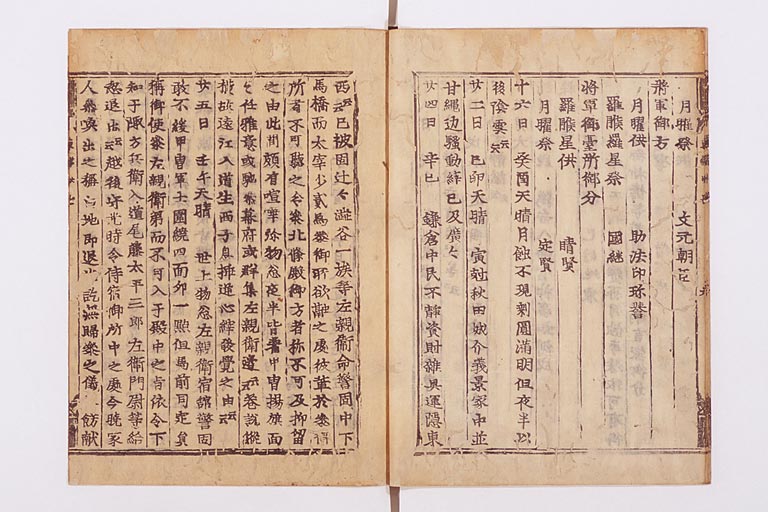 月曜祭　文元朝臣
将軍御方
月曜供　助法印珎誉
羅睺羅星祭　国継
将軍御臺所御分
羅睺星供　晴賢
月曜祭　定賢
十六日　癸酉天晴月蝕不現剰圓満明但夜半以
後陰雲云云
廿二日　己卯天晴　寅尅秋田城介義景家中並
甘縄辺騒動縡已及廣々
廿四日　辛巳　鎌倉中民不静資財雜具運隠東
西云云已被固辻々澁谷一族等左親衛命警固中下
馬橋而太宰少貳為參御所欲融之處彼輩於參御
所者不可融之令參北條殿御方者称不可及抑留
之由此間頗有喧嘩弥物忩夜半皆著甲冑揚旗面
々任雅意或馳參幕府或群集左親衛邊云云巷説縦
横故遠江入道生西子息挿逆心縡發覺之由云云
廿五日　壬午天晴　世上物忩左親衛宿舘警固
敢不緩甲冑軍士圍繞四面卯一點但馬前司定員
稱御使參左親衛第而不可入于殿中之旨依令下
知于諏方兵衛入道尾藤太平三郎左衛門尉等給
忩退出云云越後守光時令侍宿御所中之處今曉家
人參喚出之稱白地即退出訖無歸參之儀　飾献